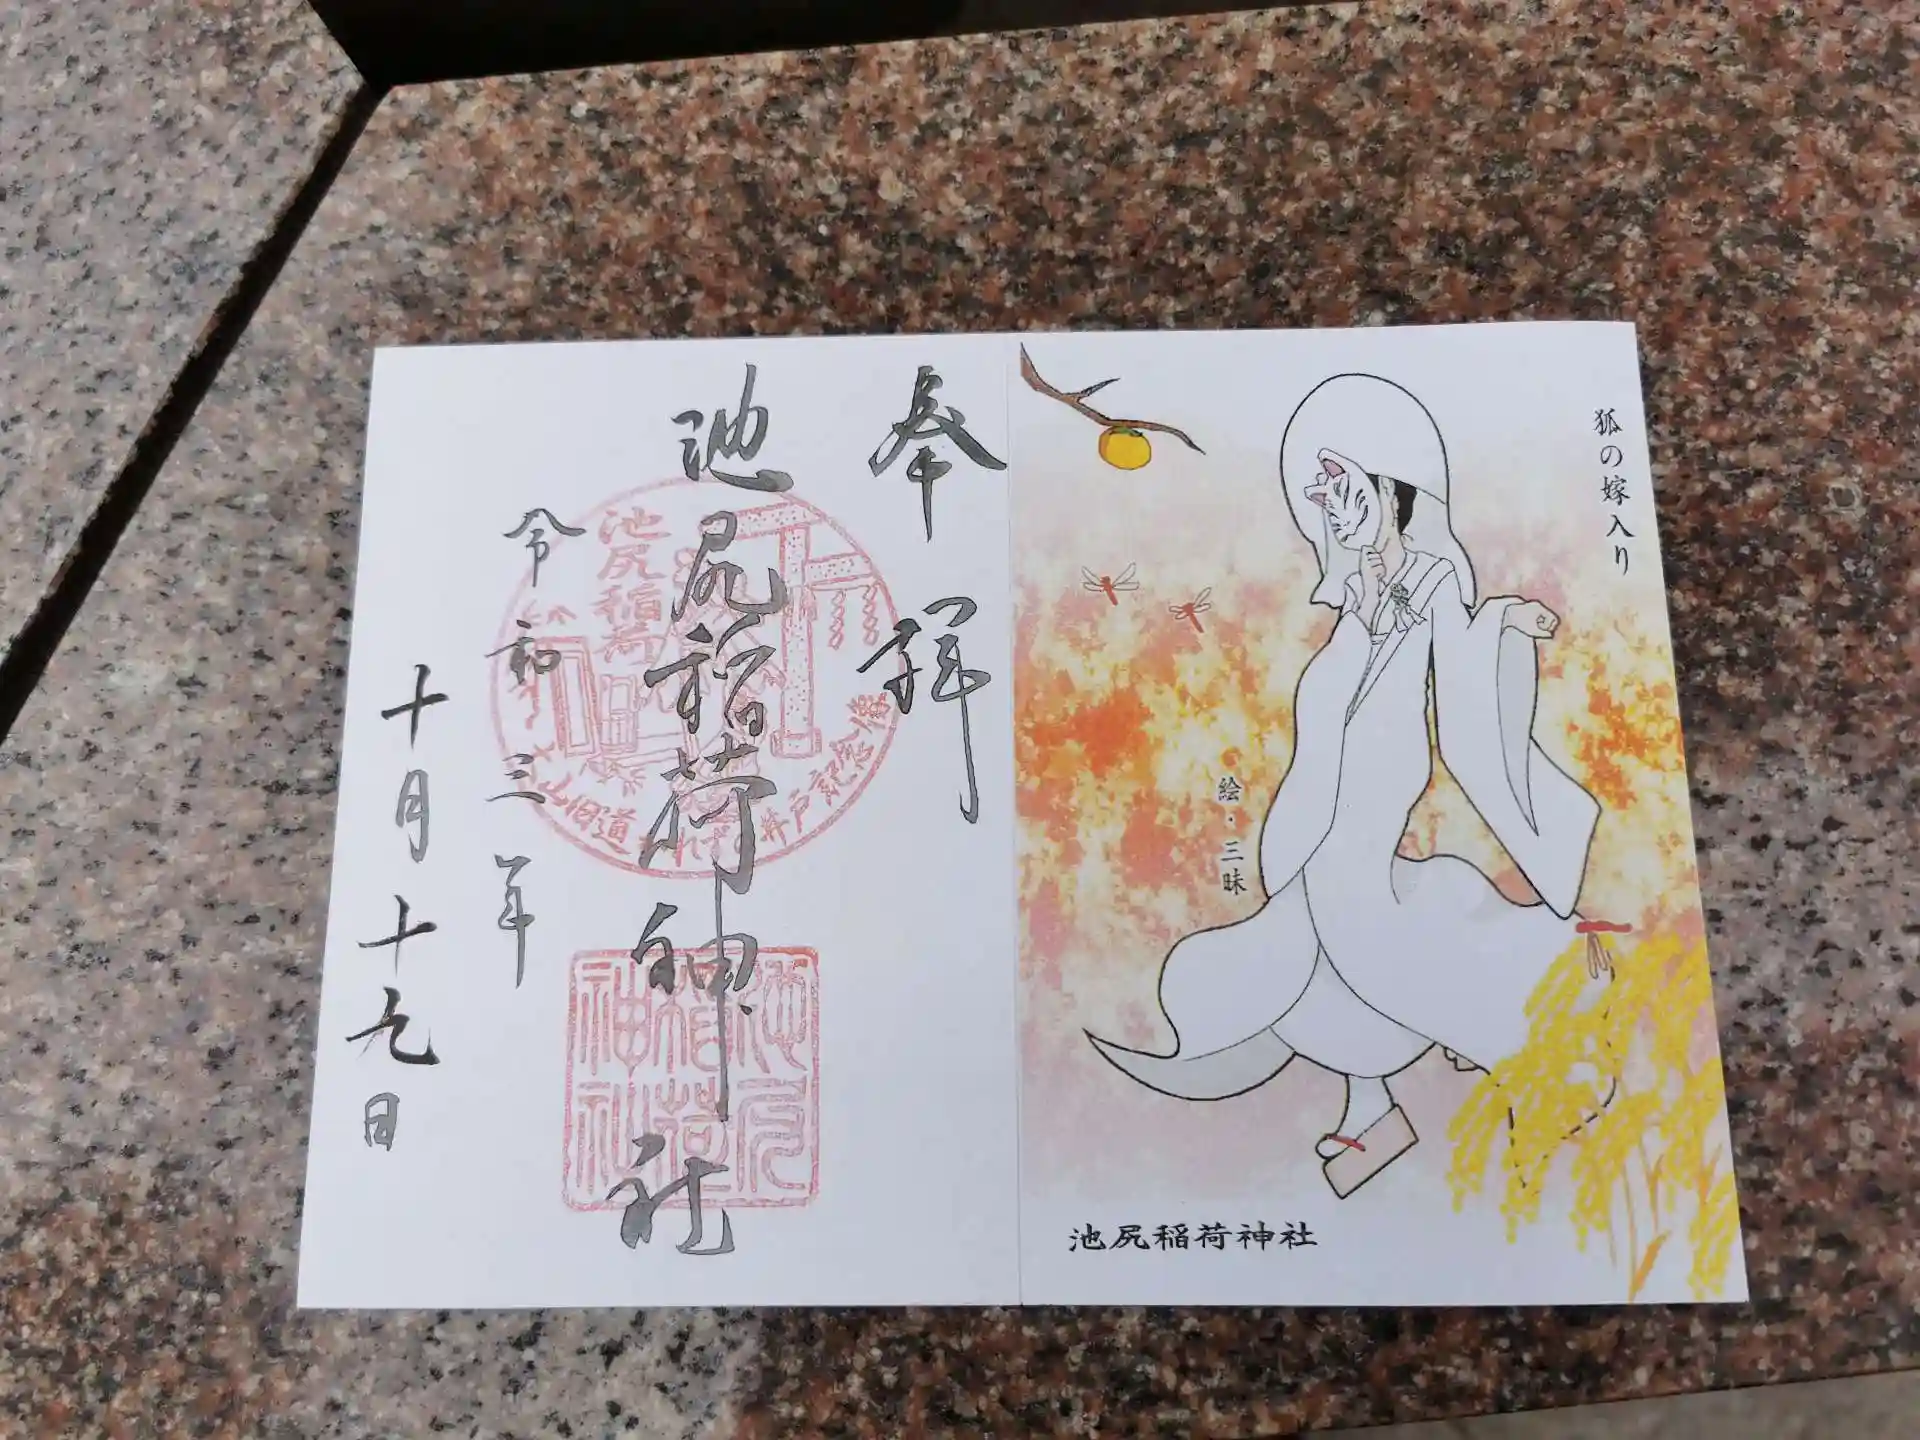 狐の嫁入り
絵・三昧
池尻稲荷神社
奉拝
池尻稲荷神社
令和三年
十月十九日
池尻稲荷
山旧道
井戸記念
池尻
稲荷
神社